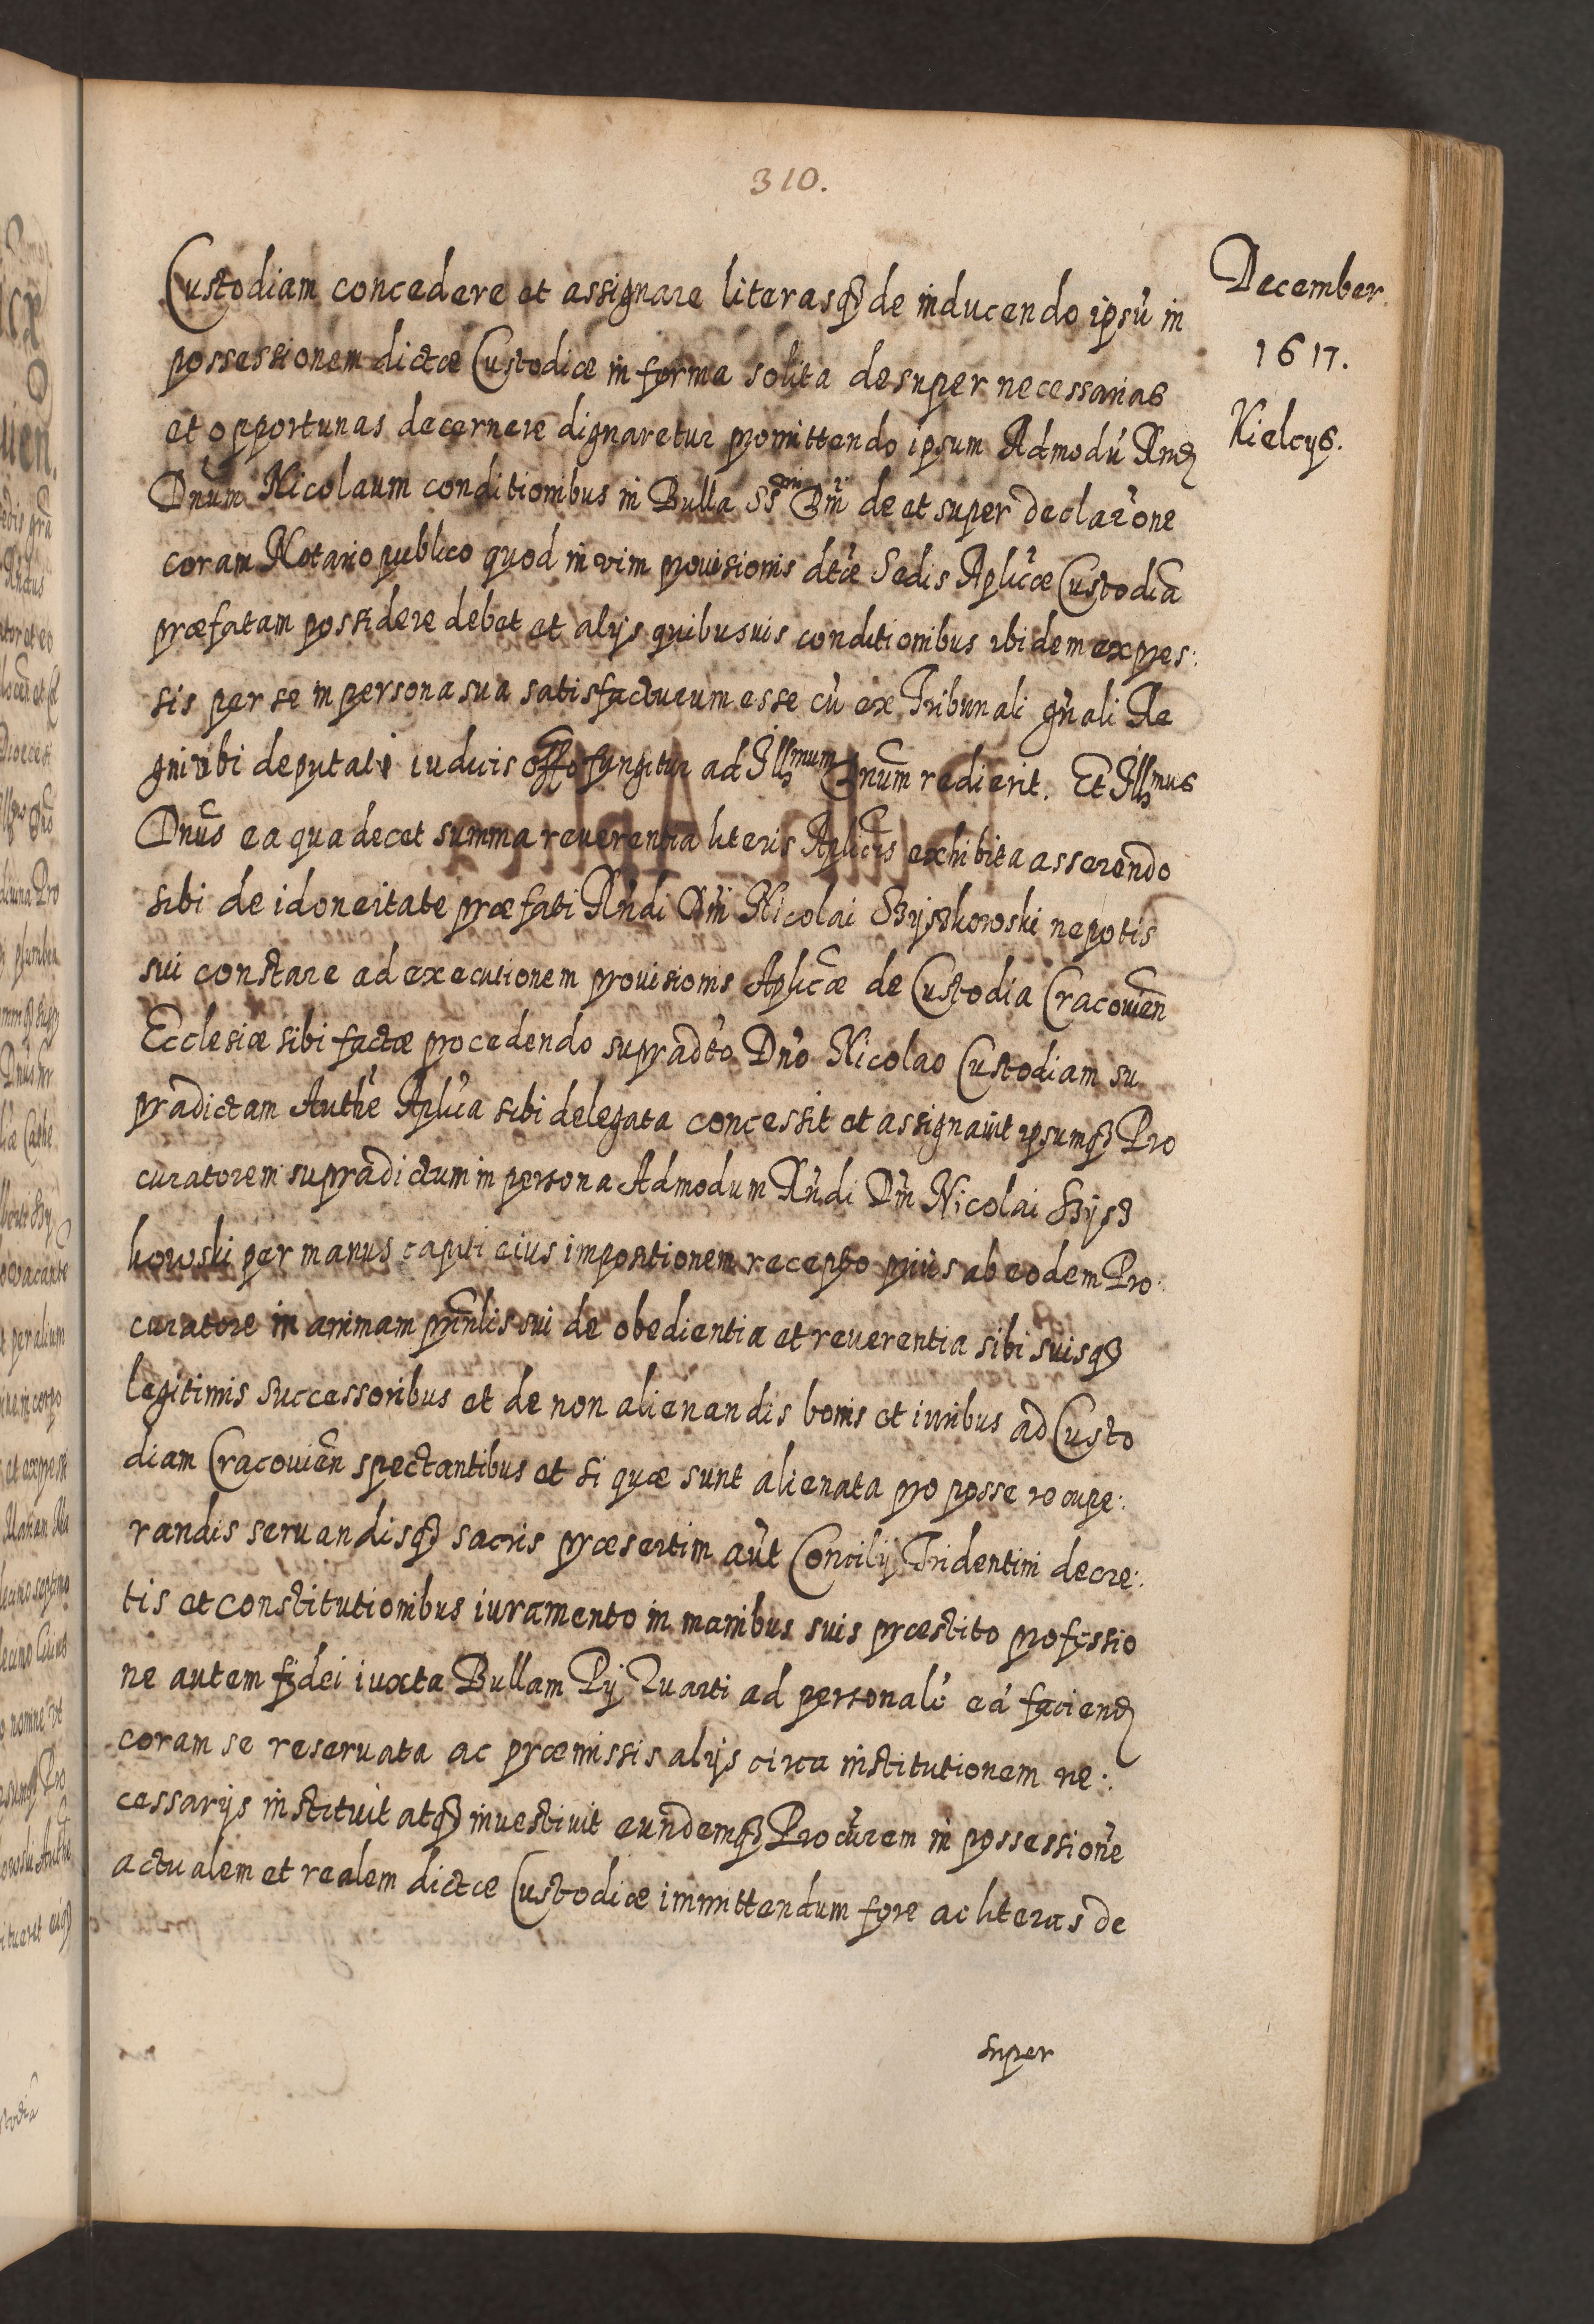 310.
Custodiam concedere et assignare literasq3 de inducendo ipsu̇ in
possessionem dictæ Custodiæ in forma solita desuper necessarias
et opportunas decernere dignaretur promittendo ipsum Admodu̇ Rnd
Dnum Nicolaum conditionibus in Bulla SSmi Dni de et super declarōne
coram Notario publico quod in vim prouisionis dtæ Sedis Aplicæ Custodiā
præfatam possidere debet et alijs quibusuis conditionibus ibidem expres:
sis per se in persona sua satisfacturum esse cu̇ ex Tribunali gn̄ali Re
gni ubi deputati iudicis offo fungitur ad Illmum Dnum redierit. Et Illmus
Dnus ea qua decet summa reuerentia literis Aplicis exhibita asserendo
sibi de idoneitate præfati Rndi Dni Nicolai Szyszkowski nepotis
sui constare ad executionem prouisionis Aplicæ de Custodia Cracouien
Ecclesiæ sibi factæ procedendo supradto Dno Nicolao Custodiam su
pradictam Authē Aplica sibi delegata concessit et assignauit ipsumq3 Pro
curatorem supradictum in persona Admodum Rndi Dni Nicolai Szysz
kowski per manus capiti eius impositionem recepto prius ab eodem Pro:
curatore in animam prin̄lis sui de obedientia et reuerentia sibi suisq3
legitimis successoribus et de non alienandis bonis et iuribus ad Custo
diam Cracouien spectantibus et si quæ sunt alienata pro posse recupe:
randis seruandisq3 sacris præsertim aūt Concilij Tridentini decre:
tis et constitutionibus iuramento in manibus suis præstito professio
ne autem fidei iuxta Bullam Pij Quarti ad personalē eā faciend
coram se reseruata ac præmissis alijs circa institutionem ne:
cessarijs instituit atq3 inuestiuit eundemq3 Procūrem in possessionē
actualem et realem dictæ Custodiæ immittendum fore ac literas de
super
December
1617.
Kielcys.